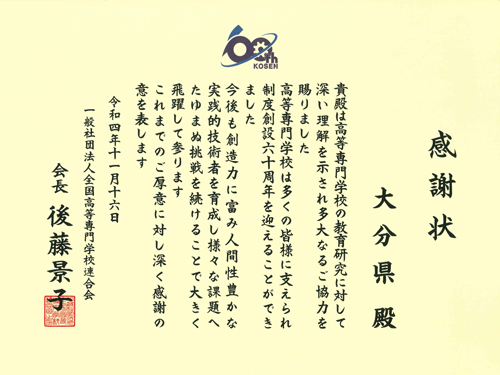 60th
KOSEN
感謝状
大分県 殿
貴殿は高等専門学校の教育研究に対して
深い理解を示され多大なるご協力を
賜りました
高等専門学校は多くの皆様に支えられ
制度創設六十周年を迎えることができ
ました
今後も創造力に富み人間性豊かな
実践的技術者を育成し様々な課題へ
たゆまぬ挑戦を続けることで大きく
飛躍して参ります
これまでのご厚意に対し深く感謝の
意を表します
令和四年十一月十六日
一般社団法人全国高等専門学校連合会
会長 後藤景子